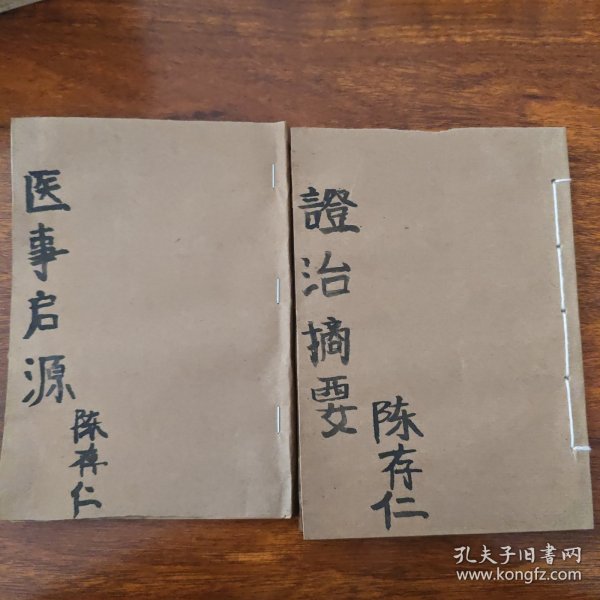 医事启源
陈存仁
證治摘要
陈存仁
孔夫子旧書网
www.kongfz.com